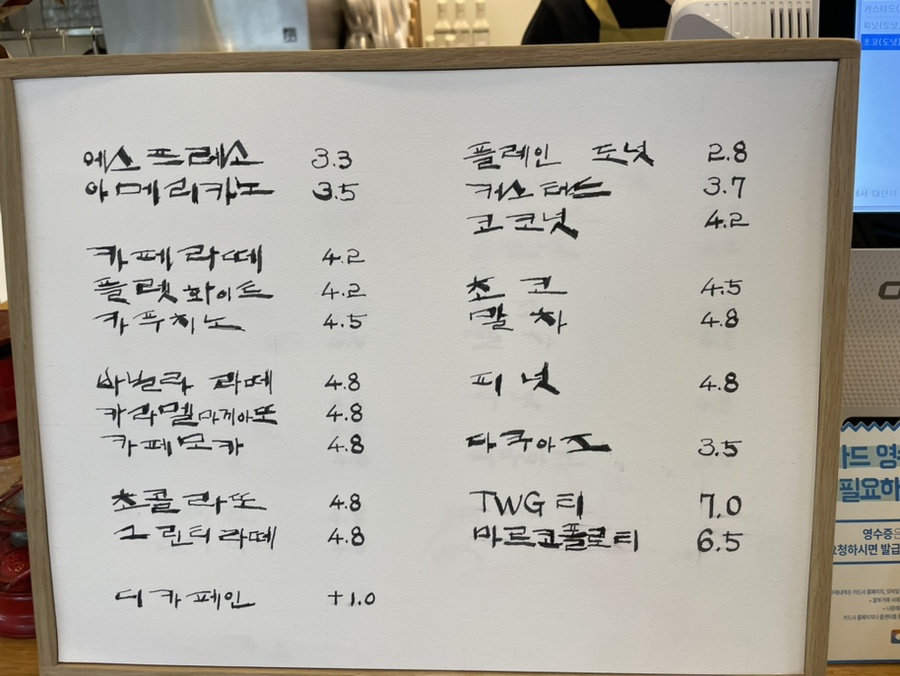 에스프레소 3.3
아메리카노 3.5
카페라떼 4.2
플렛화이트 4.2
카푸치노 4.5
바닐라 라떼 4.8
카라멜마끼아또 4.8
카페모카 4.8
쵸콜라또 4.8
그린티라떼 4.8
디카페인 +1.0
플레인 도넛 2.8
커스터드 3.7
코코넛 4.2
쵸코 4.5
말차 4.8
피넛 4.8
다쿠아즈 3.5
TWG 티 7.0
마르코폴로티 6.5
카드 영수
필요하
영수증은
요청하시면 발급